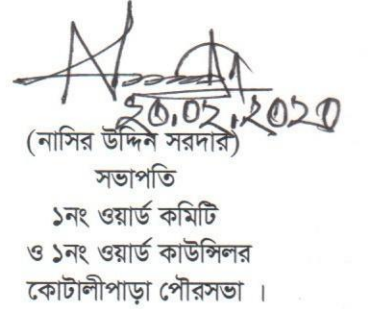 ২০.০২.২০২০
(নাসির উদ্দিন সরদার)
সভাপতি
১নং ওয়ার্ড কমিটি
ও ১নং ওয়ার্ড কাউন্সিলর
কোটালীপাড়া পৌরসভা ।